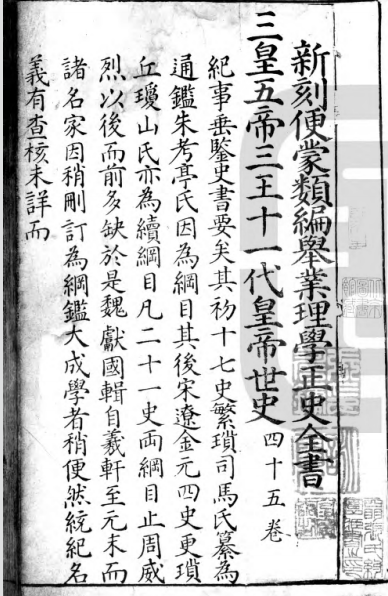 新刻便蒙類編舉業理學正史全書
三皇五帝三王十一代皇帝世史 四十五卷
紀事垂鑒史書要矣其初十七史繁瑣司馬氏纂為
通鑑朱考亭氏因為綱目其後宋遼金元四史更瑣
丘瓊山氏亦為續綱目凡二十一史両綱目止周威
烈以後而前多缺於是魏獻國輯自羲軒至元末而
諸名家因稍刪訂為綱鑑大成學者稍便然統紀名
義有查核未詳而